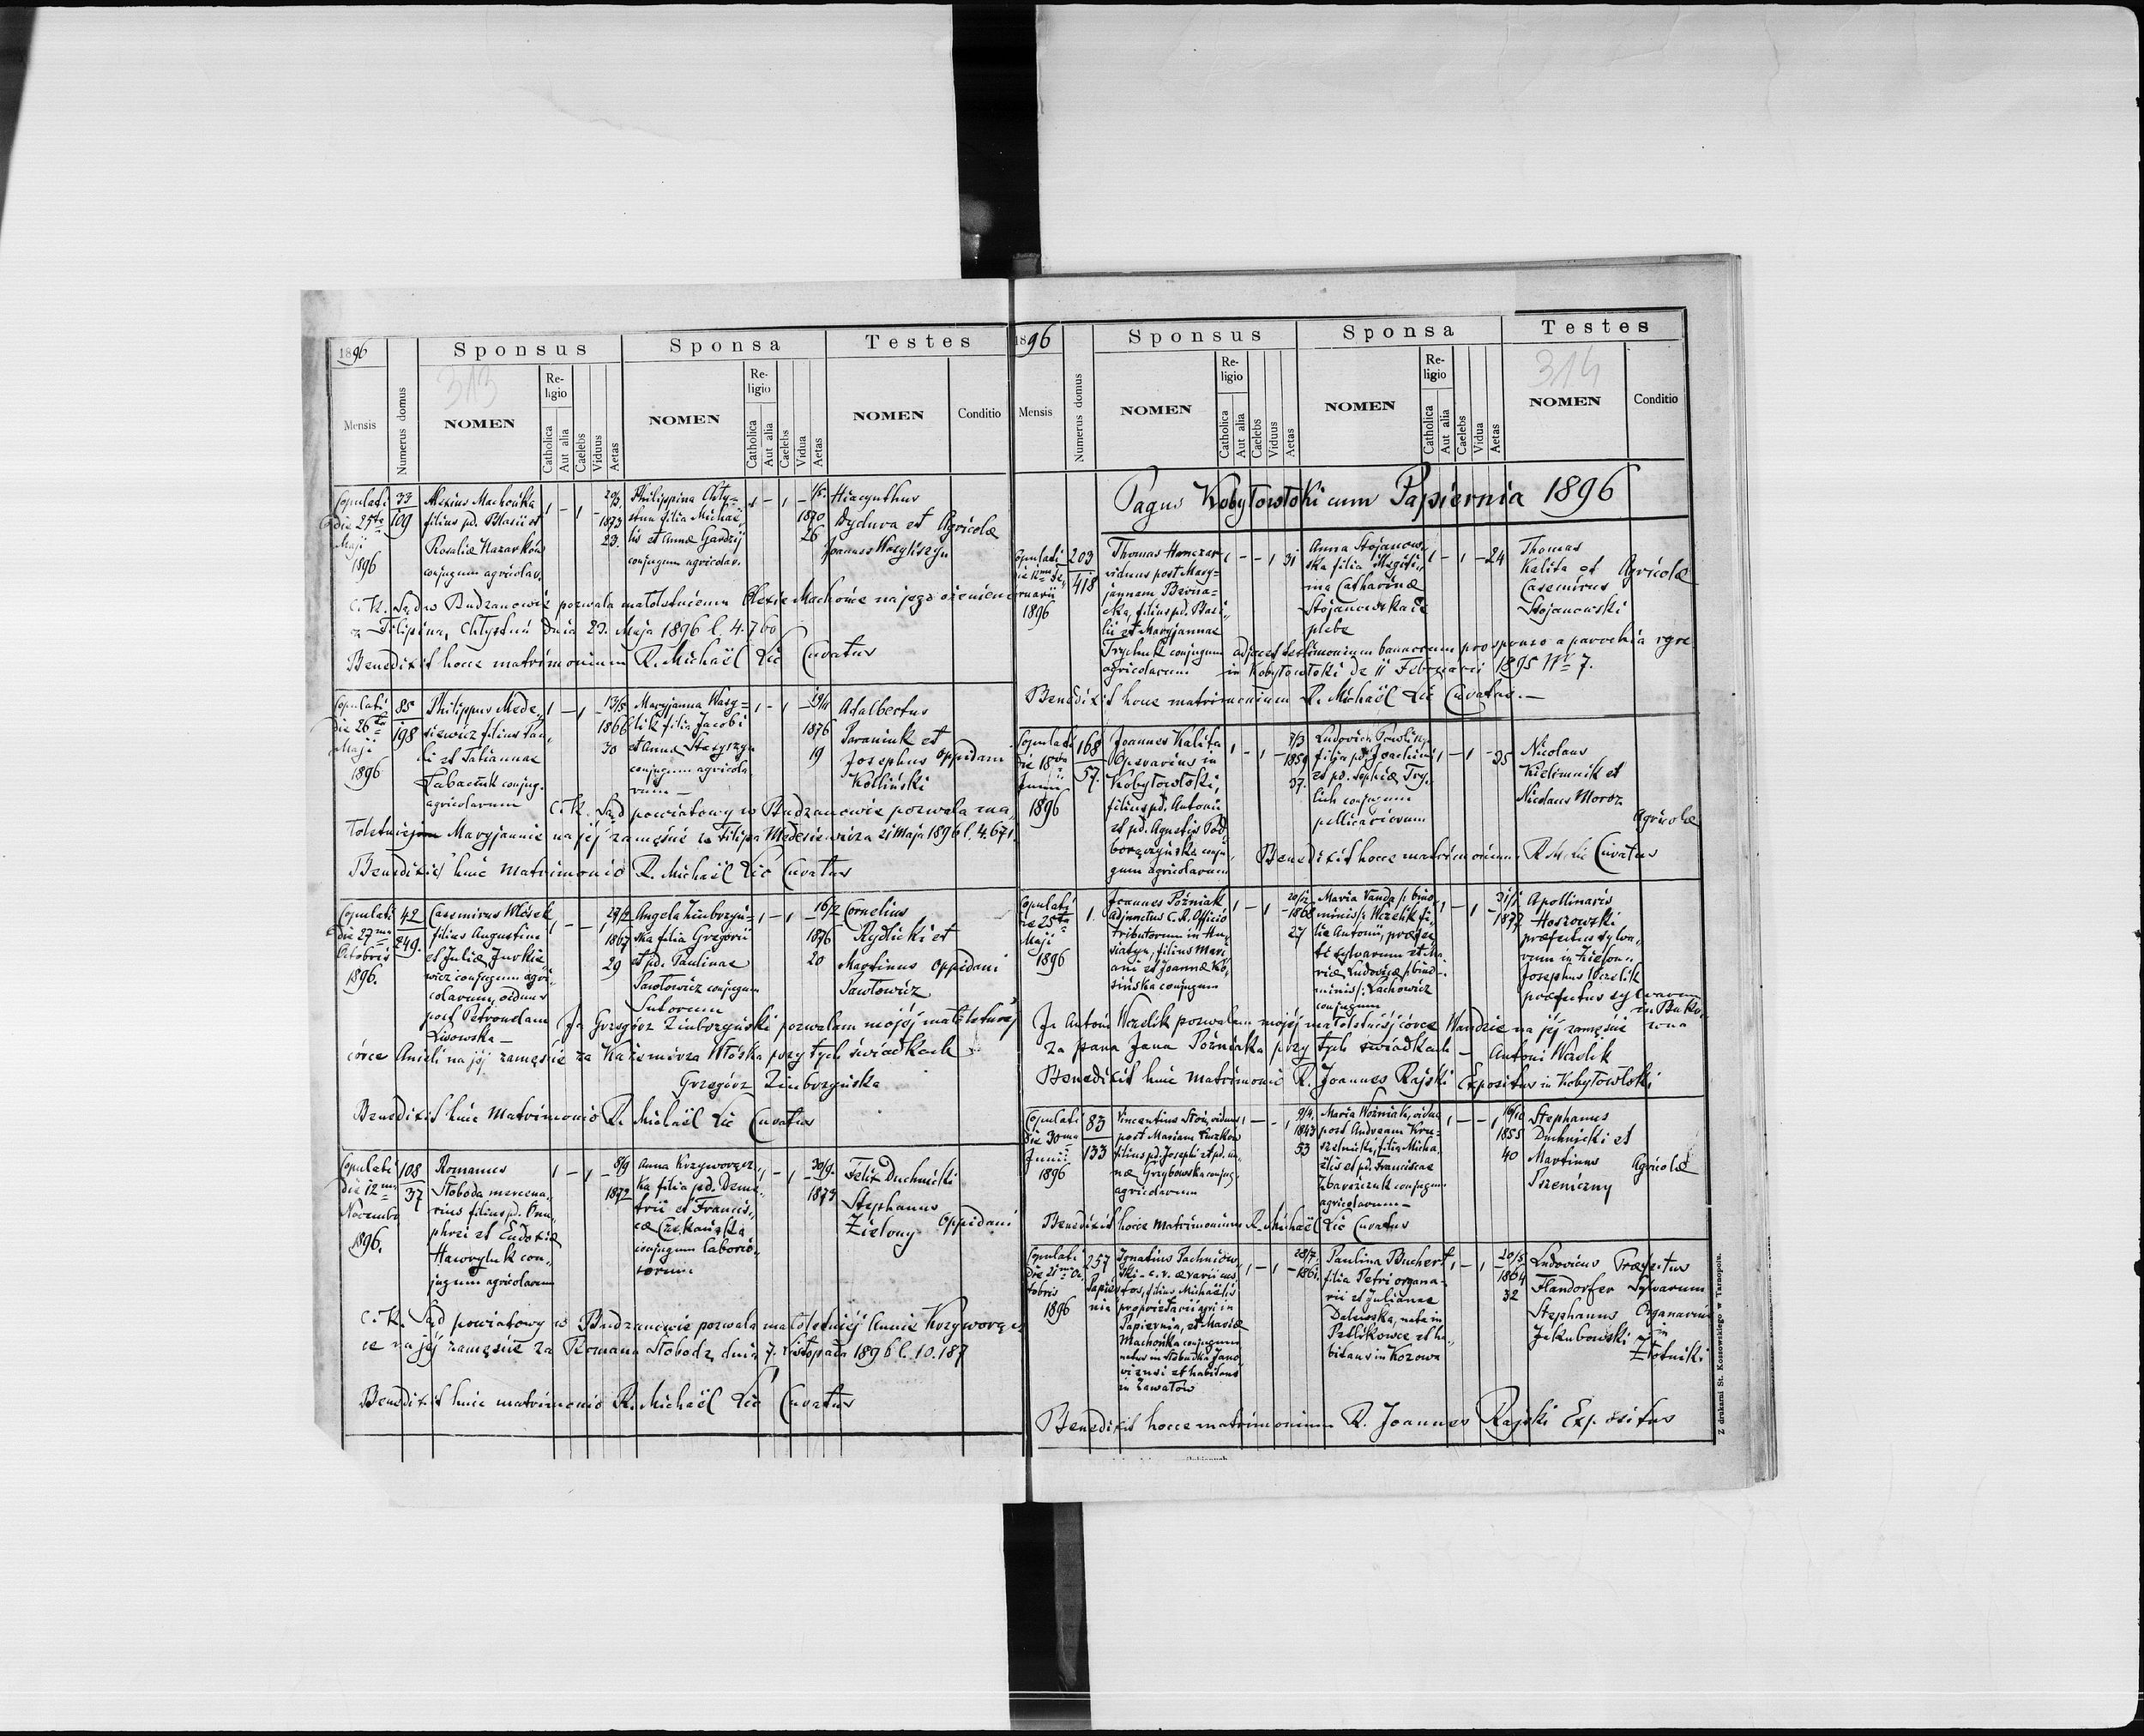 1896
Sponsus
Sponsa
Testes
313
Mensis
Numerus domus
NOMEN
Religio
Catholica
Aut alia
Caelebs
Viduus
Aetas
NOMEN
Religio
Catholica
Aut alia
Caelebs
Vidua
Aetas
NOMEN
Conditio
Copulati
die 25ta
Maji
1896
33
109
Alexius Machońka
filius pd. Blasii et
Rosaliæ Nazarków
conjugum agricolar.
1 - 1 -
1873
23.
Philippina Chły=
stun filia Michaë,,
lis et Annæ Gardzij
conjugum agricolar.
1 - 1 -
1870
26
Hiacynthus
Dydura et
Joannes Wasyliszyn
Agricolæ
C. K. Sąd w Budzanowie pozwala małoletniemu Olexie Machońce na jego ożenienie
z Filipiną Chłystuń dnia 23. Maja 1896 l. 4.760
Benedixit hocce matrimonium R. Michaël Lic Curatus
Copulati
die 26ta
Maji
1896
85
198
Philippus Mede,,
siewicz filius Pau,,
li et Tatiannae
Tabaczuk conjug.
agricolarum
1 - 1 -
13/5
1866
30
Maryjanna Wasy=
lik filia Jacobi
et Annæ Staryszyn
conjugum agricola
rum —
1 - 1 -
1876
19
Adalbertus
Paraniuk et
Josephus
Kotliński
oppidani
C. K. Sąd powiatowy w Budzanowie pozwala ma,,
łoletniej Maryjannie na jéj zamęście za Filipa Medesiewicza 21 Maja 1896 l. 4.671.
Benedixit huic Matrimonio R. Michaël Lic Curatus
Copulati
die 27ma
Octobris
1896.
42
249.
Casemirus Włósek
filius Augustini
et Juliæ Jurkie
wicz conjugum agri,,
colarum, viduus
post Petronelam
Lisowska —
1867
29
Angela Zimborzyń=
ska filia Gregorii
et pd. Paulinae
Pawłowicz conjugum
Sutorum
1 - 1 -
16/2
1876
20
Cornelius
Rydlicki et
Martinus
Pawłowicz
oppidani
Ja Grzegórz Zimborzyński pozwalam mojéj małoletniéj
córce Anieli na jéj zamęście za Kazimirza Włóska przy tych świadkach
Grzegórz Zimborzyńska
Benedixit huic Matrimonio R. Michaël Lic Curatus
Copulati
die 12ma
Novembr
1896.
108
37
Romanus
Słoboda mercena,,
rius filius pd. Onu,,
phrei et Eudoxiæ
Hawryluk con,,
jugum agricolarum
1 - 1 -
8/9
1872
Anna Krzyworącz,,
ka filia pd. Deme,,
trii et Francis,,
cæ Czekańska
conjugum laborio,,
sorum
1 - 1 -
30/9
1873
Felix Duchnicki
Stephanus
Zielony
Oppidani
C. K. Sąd powiatowy w Budzanowie pozwala małoletniéj Annie Krzyworącz
ce na jéj zamęście za Romana Słobodę dnia 7. Listopada 1896 l. 10.187
Benedixit huic matrimonio R. Michaël Lic Curatus
1896
Sponsus
Sponsa
Testes
314
Mensis
Numerus domus
NOMEN
Religio
Catholica
Aut alia
Caelebs
Viduus
Aetas
NOMEN
Religio
Catholica
Aut alia
Caelebs
Vidua
Aetas
NOMEN
Conditio
Pagus Kobyłowłoki cum Papiernia 1896
Copulati
1896
203
418
Thomas Honczar
viduus post Mary=
jannam
filius pd. Basi,,
lii et Maryjannae
Trychuk conjugum
agricolarum
1 - - 1 31
Anna Stojanow,,
ska filia illegiti,,
ma Catharinæ
Stojanowska de
plebe
1 - 1 - 24
Thomas
Kalita et
Casemirus
Stojanowski
Agricolæ
adjacet testimonium bannorum pro sponso a parochia rgre
in Kobyłowłoki de 11 Februarii 1895 Nr 7.
Benedixit hocce matrimonium R. Michaël Lic Curatus. —
Copulati
die 18va
Junii
1896
168
57.
Joannes Kalita
Operarius in
Kobyłowłoki,
filius pd. Antonii
et pd. Agnetis Pod
borączyńska conju,,
gum agricolarum
1 - 1 -
8/3
1859
37.
Ludovica Pawling
filia pd. Joachimi
et pd. Sophiæ Try,,
lich conjugum
pellicariorum
1 - 1 - 35
Nicolaus
Kielimnik et
Nicolaus Moroz
Agricolæ
Benedixit hocce matrimonium R. M. Lic Curatus
Copulati
die 25ta
Maji
1896
1.
Joannes Poźniak
Adjunctus C. R. Officio
tributorum in Hu,,
siatyn, filius Mari,,
ani et Joannæ Ko,,
sińska conjugum
1 - 1 -
1868
27
Maria Vanda /: bino
minis :/ Wczelik fi,,
lia Antonii, præfec
ti sylvarum et Ma,,
riæ Ludovicæ /: bino
minis :/ Lachowicz
conjugum
1 - 1 -
31/1
1877
Apollinaris
Hoszowski
præfectus sylva,,
rum in
Josephus Wczelik
præfectus sylvarum
in Buko,,
wina
Ja Antoni Wczelik pozwalam mojéj małoletniéj córce Wandzie na jéj zamęście
za pana Jana Poźniaka przy tych swiadkach — Antoni Wczelik
Benedixit huic Matrimonio R. Joannes Rajski Expositus in Kobyłowłoki
Copulati
die 30ma
Junii
1896
83
133
Vincentius Stój, viduus
post Mariam Luzkow
filius pd. Josephi et pd. An,,
næ Grzybowska conjug.
agricolarum
1 - - 1
9/4.
1843
53
Maria Woźniak, vidua
post Andream Kru=
szelnicki, filia Micha,,
ëlis et pd. Franciscae
Zbarażczuk conjugum
agricolarum —
1 - - 1
16/10
1855
40
Stephanus
Duchnicki et
Martinus
Pszeniczny
Agricolæ
Benedixit hocce Matrimonium R. Michaël Lic Curatus
Copulati
die 21ma Oc
tobris
1896
257
Papier
nia
Ignatius Pachniow,,
ski - c. r. ærarii cus,,
tos, filius Michaëlis
proprietarii agri in
Papiernia, et Mariæ
Machońka conjugum
natus in Słobudka Jano,,
wiensi et habitans
in Zawałów
1 - 1 -
28/7.
1861.
Paulina Buchert
filia Petri organa,,
rii et Juliannæ
nata in
Petlikowce et ha,,
bitans in Kozowa
1 - 1 -
20/5
1864
32
Ludovicus
Flandorfer
Stephanus
Jakubowski
Præfectus
Sylvarum
Organarius
in
Złotniki
Benedixit hocce matrimonium R. Joannes Rajski Expositus
Z drukarni St. Kossowskiego w Tarnopolu.